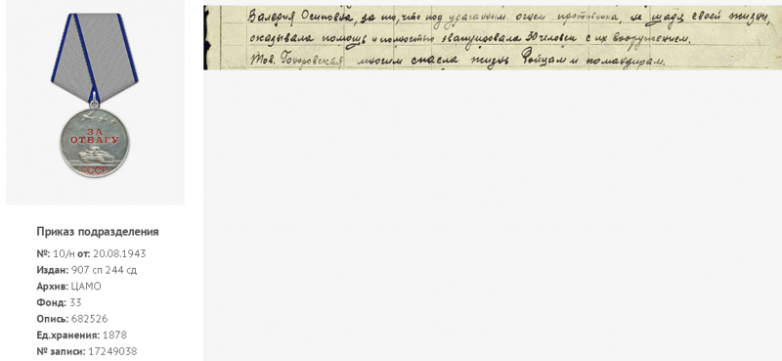 ЗА
ОТВАГУ
СССР
Приказ подразделения
№: 10/н от: 20.08.1943
Издан: 907 сп 244 сд
Архив: ЦАМО
Фонд: 33
Опись: 682526
Ед.хранения: 1878
№ записи: 17249038
Валерия Осиповна, за то, что под ураганным огнем противника, не щадя своей жизни,
оказывала помощь и полностью эвакуировала 30 человек с их вооружением.
Тов. многим спасла жизнь бойцам и командирам.